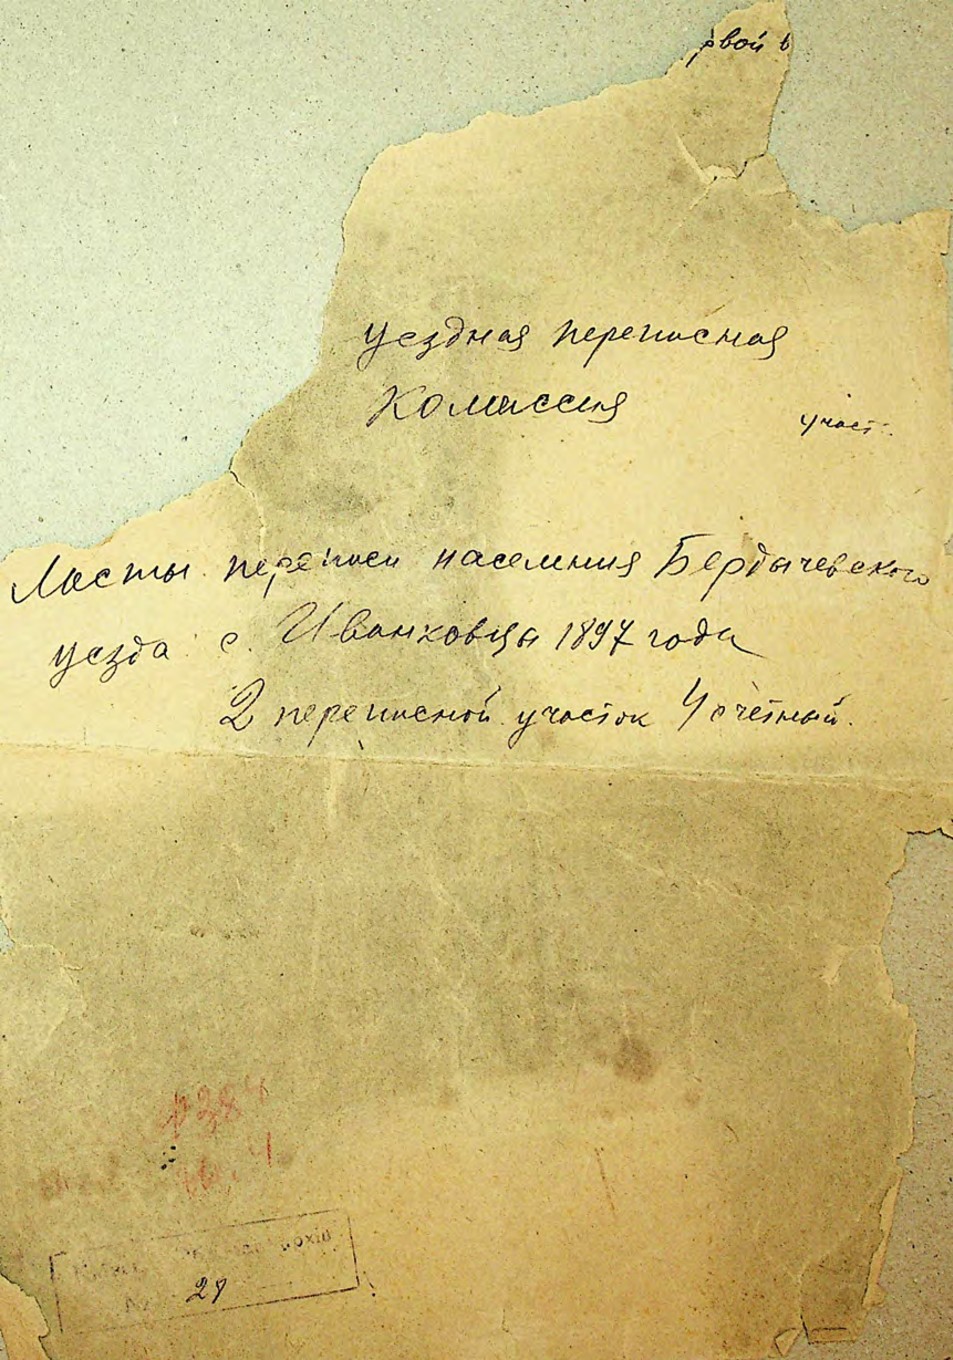 рвой в
уездная переписная
Комиссия
участ.
Листы переписи населения Бердычевского
уезда с. Иванковцы 1897 года
2 переписной участок 4 счетный.
28